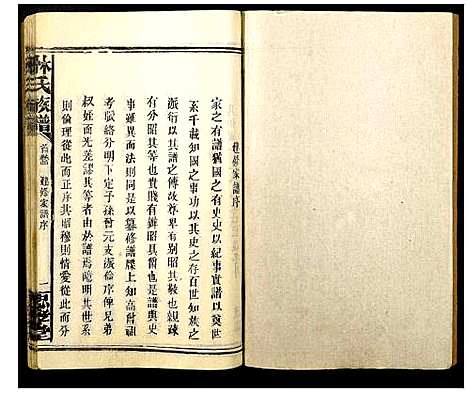 續修家譜序
家之有譜猶國之有史史以紀事實譜以奠世
系千載知國之事功以其史之存百世知族之
派衍以其譜之傳故尊卑有別昭其敬也親疎
有分昭其等也貴賤有雜昭其賢也是譜與史
事雖異而法則同是以纂修譜牒上知高曾祖
考脈絡分明下定子孫曾元支派倫序俾兄弟
叔姪而先差認其等者由於譜焉證明其世系
則倫理從此而正序其昭穆則情愛從此而分
林氏族譜
首卷
續修家譜序
一